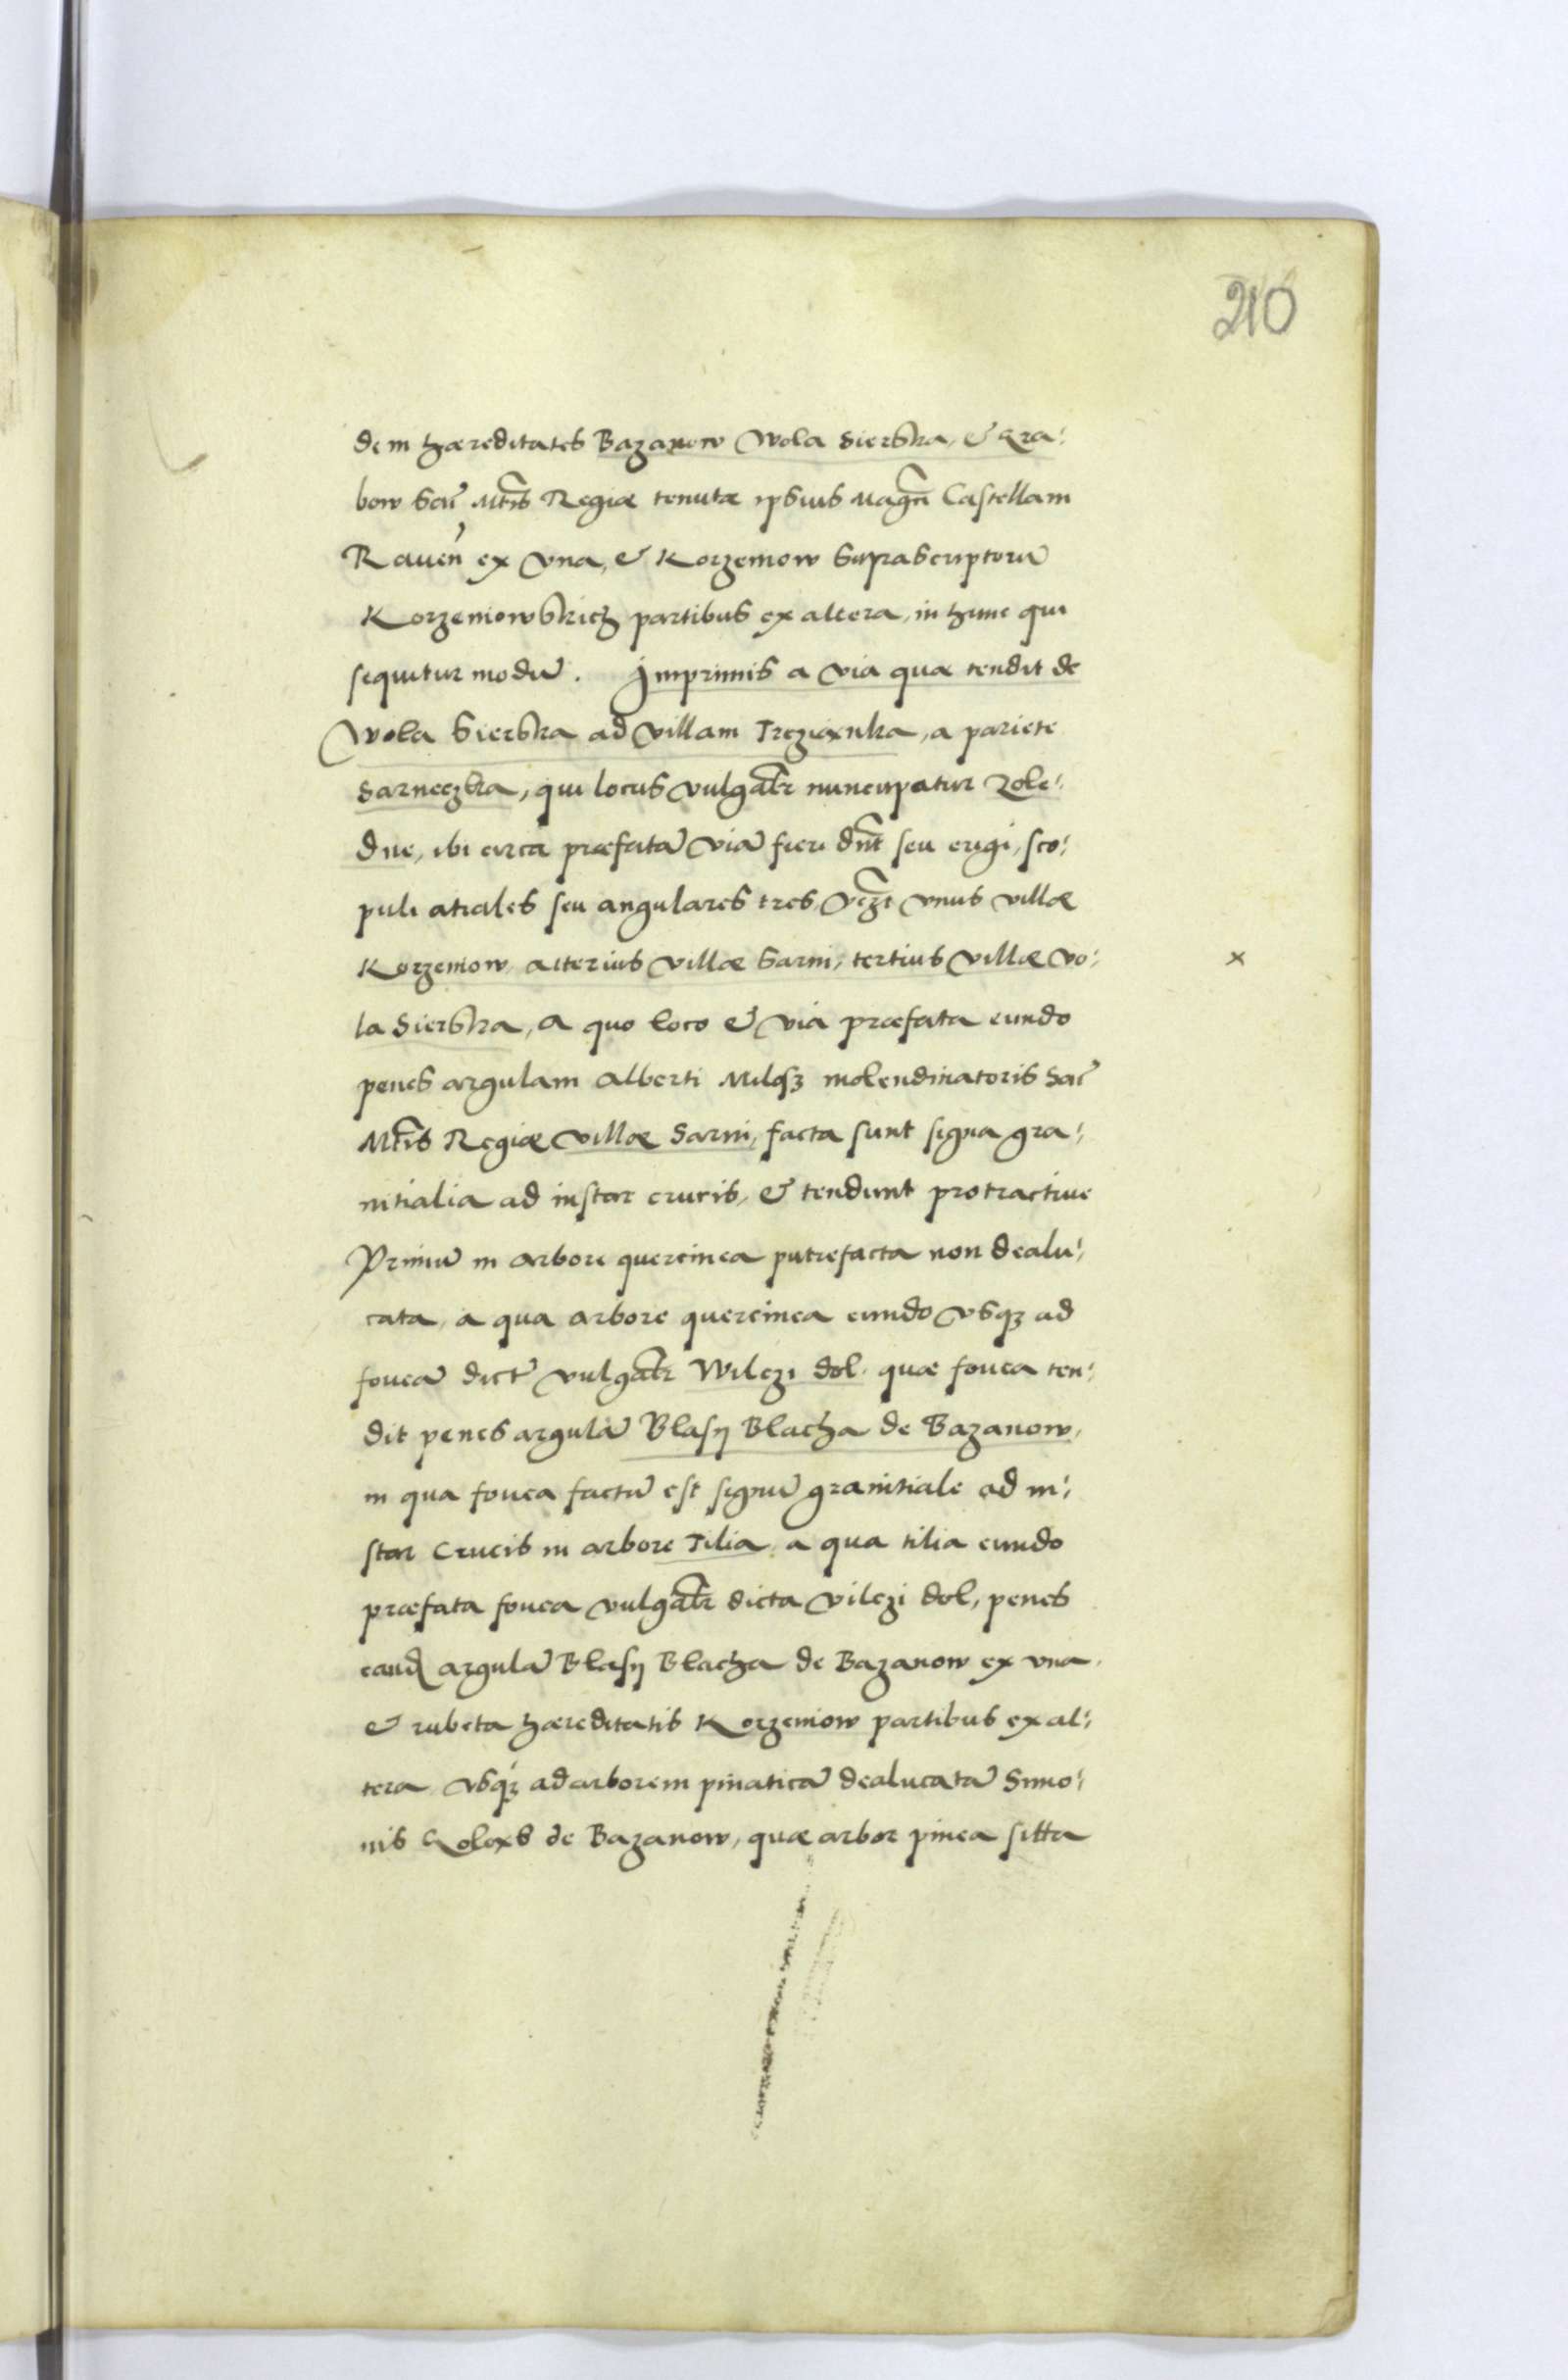 210
dem hæreditates Bazanow Wola Sierska, & Gra:
bow Sac̃ Mt̃is Regiæ tenutæ ipsius Magc̃i Castellani
Raueñ ex vna, & Korzeniow suprascriptorũ
Korzeniowskich partibus ex altera, in hunc qui
sequitur modũ. Imprimis a via quæ tendit de
Wola Sierska ad villam Trzcianka, a pariete
Sarneczka, qui locus vulgatr̃ nuncupatur Zole:
dne, ibi circa præfatã viã fieri dñt seu erigi, sco:
puli aciales seu angulares tres, vczt̃ vnus villæ
Korzeniow, alterius villæ Sarni, tertius villæ Vo: x
la Sierska, a quo loco & via præfata eundo
penes argulam Alberti Milosz molendinatoris Sac̃
Mt̃is Regiæ villæ Sarni, facta sunt signa gra:
nitialia ad instar crucis, & tendunt protractiue
Primũ in arbore quercinea putrefacta non dealu:
cata, a qua arbore quercinea eundo vsq3 ad
foueã dict̃ vulgatr̃ Wilczi dol. quæ fouea ten:
dit penes argulã Blasij Blacha de Bazanow,
in qua fouea factũ est signũ granitiale ad in:
star Crucis in arbore Tilia, a qua tilia eundo
præfata fouea vulgatr̃ dicta vilczi dol, penes
eand argulã Blasij Blacha de Bazanow ex vna,
& rubeta hæreditatis Korzeniow partibus ex al:
tera vsq3 ad arborem pinaticã dealucatã Simo:
nis de Bazanow, quæ arbor pinea sitta